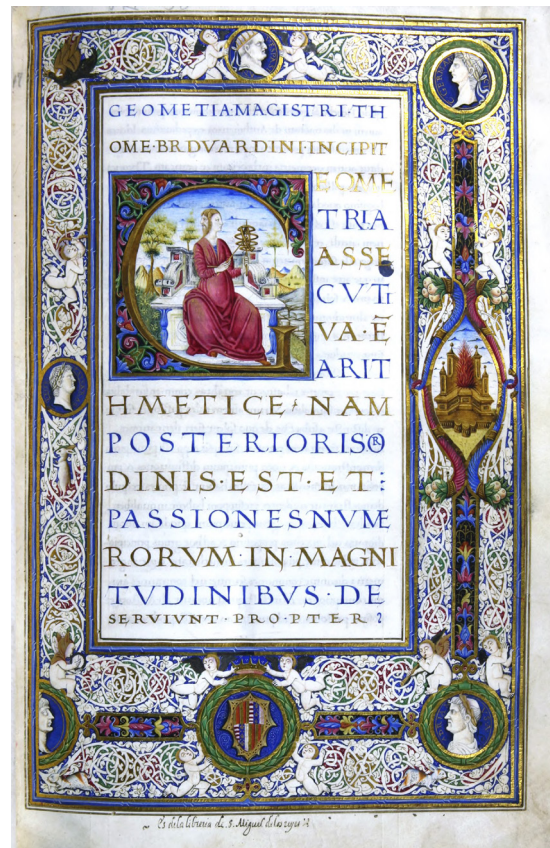 GEOMETIA·MAGISTRI·TH
OME·BRDVARDINI·INCIPIT
GEOME
TRIA
ASSE
CVTI
VA·Ē
ARIT
HMETICE: NAM
POSTERIORIS·OR
DINIS·EST·ET:
PASSIONES NVME
RORVM·IN·MAGNI
TVDINIBVS·DE
SERVIUNT·PRO·PTER
Es dela libreria de S. Miguel de los reyes